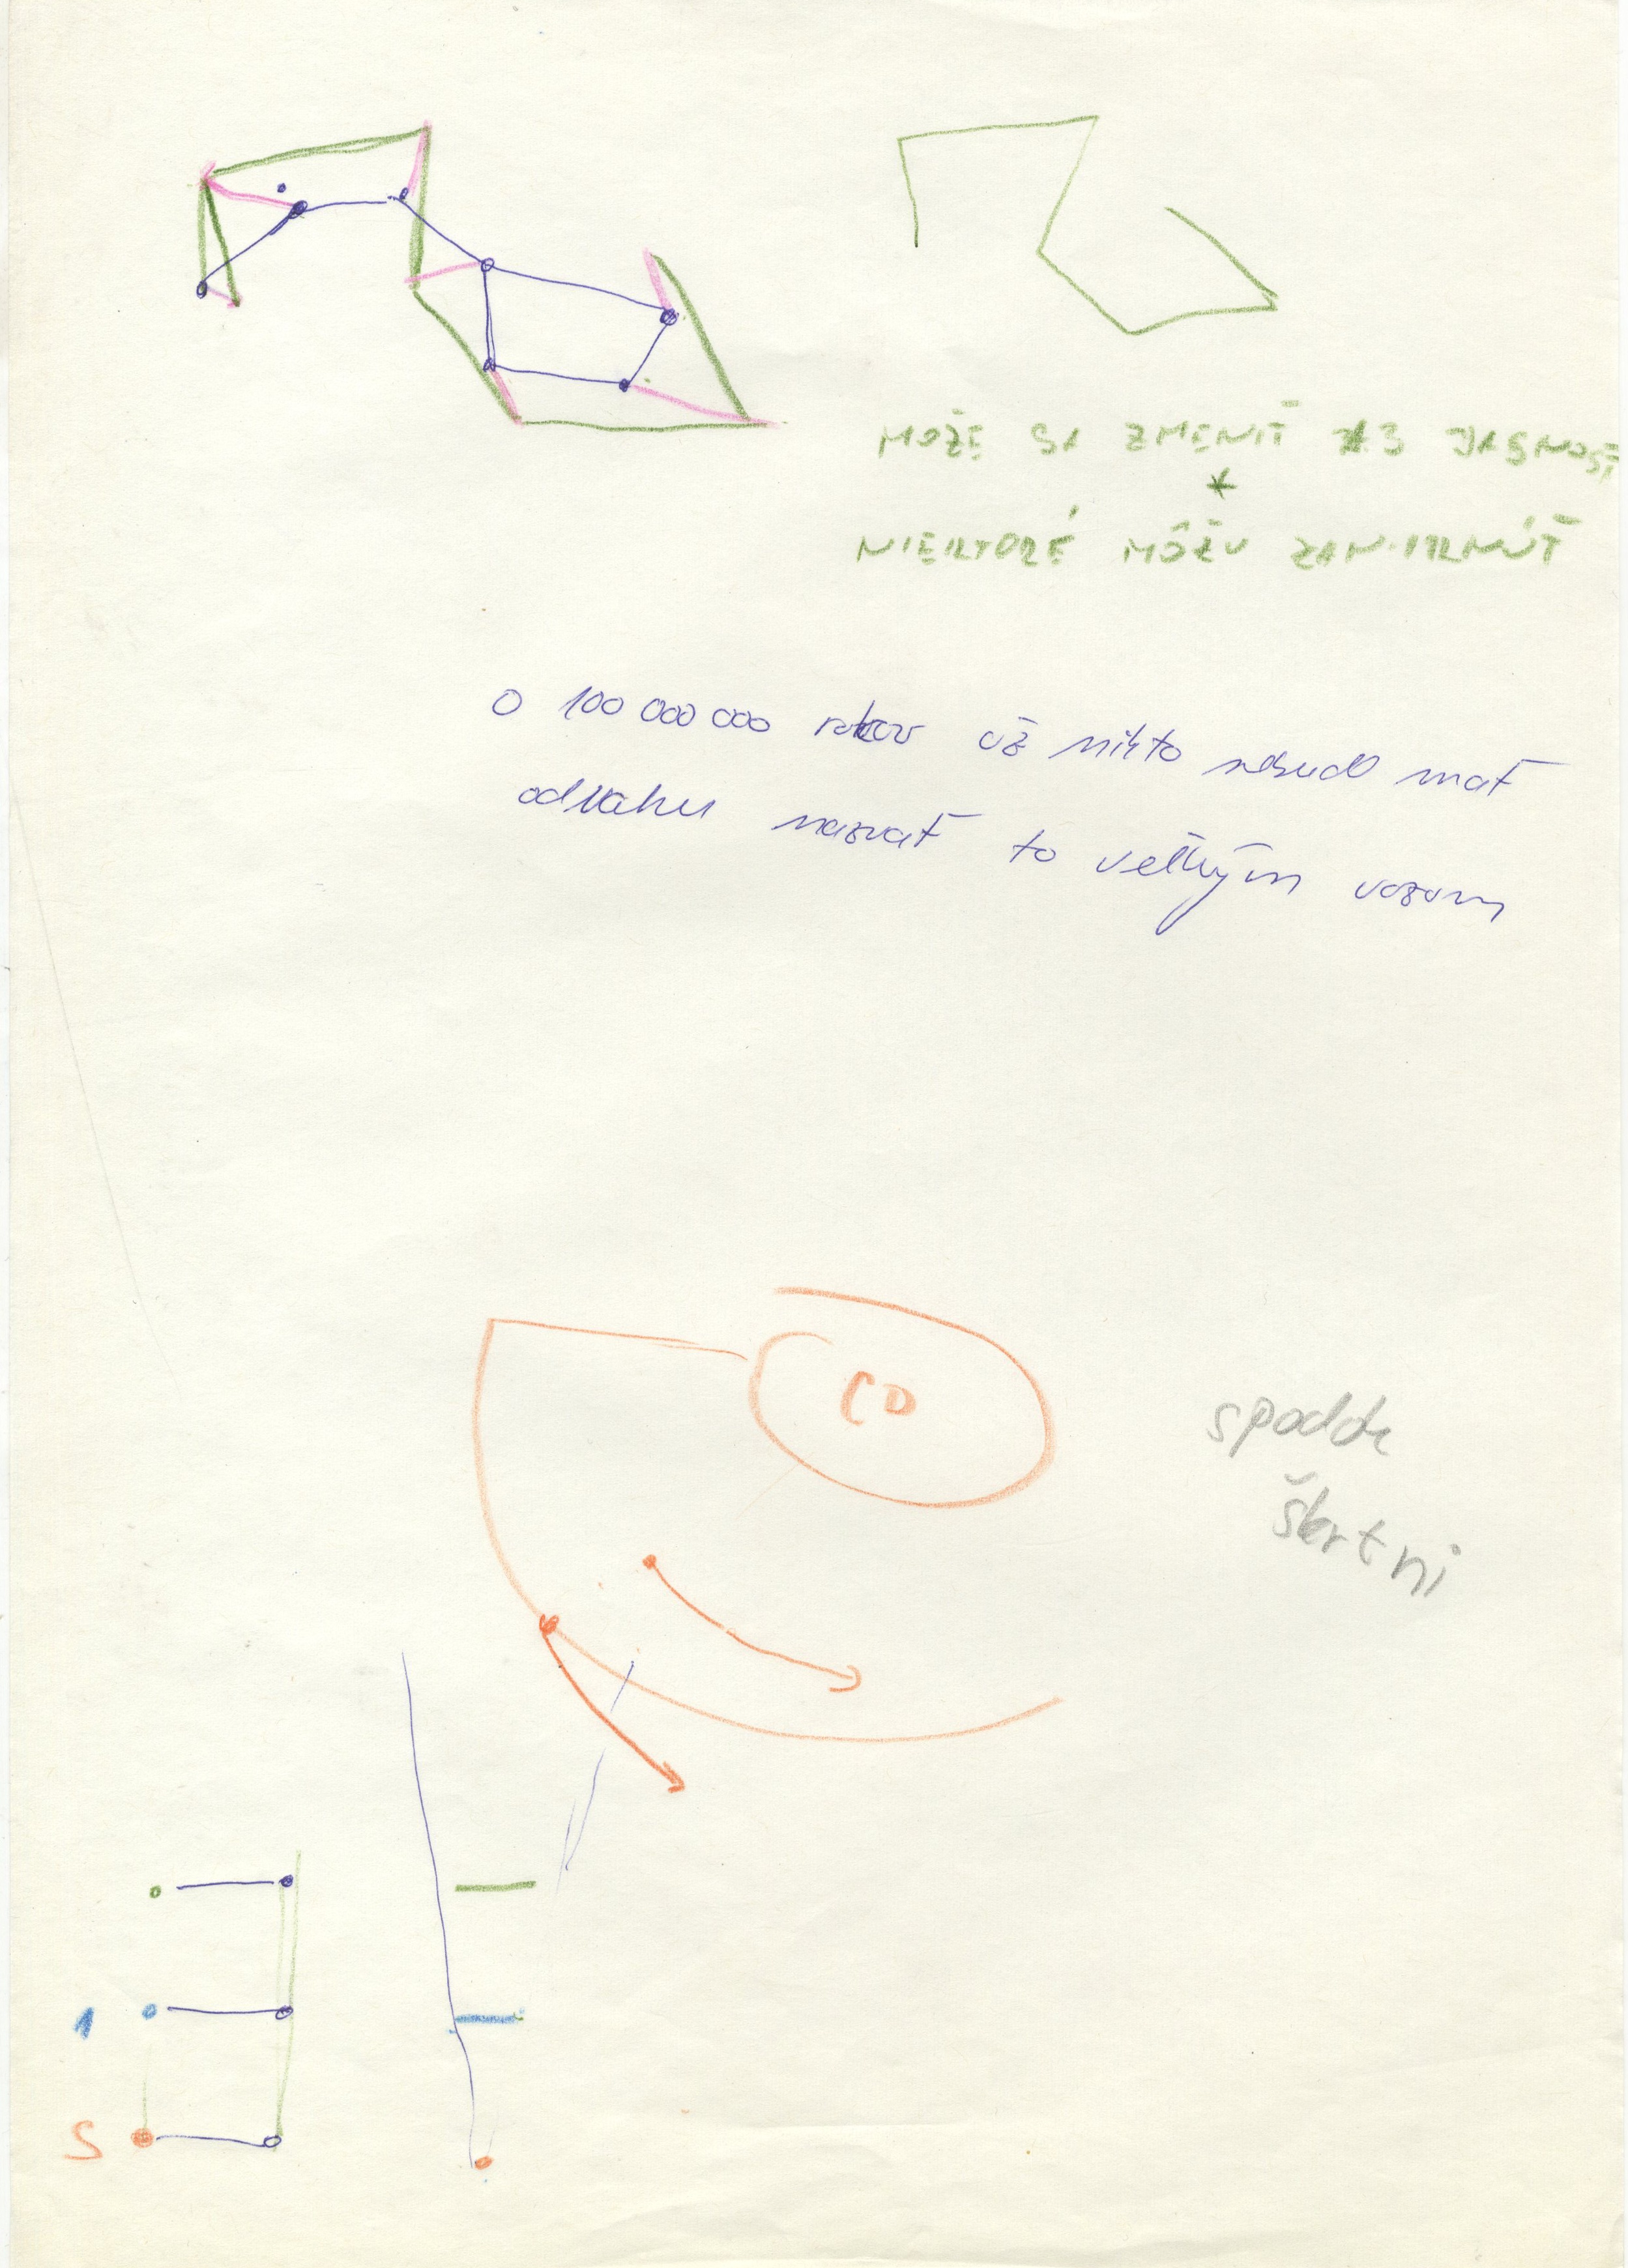 MÔŽE SA ZMENIŤ AJ JASNOSŤ
*
NIEKTORÉ MÔŽU ZANIKNÚŤ
O 100 000 000 rokov už nikto nebude mať
odvahu nazvať to veľkým vozom
CO
spodok
škrtni
1
S